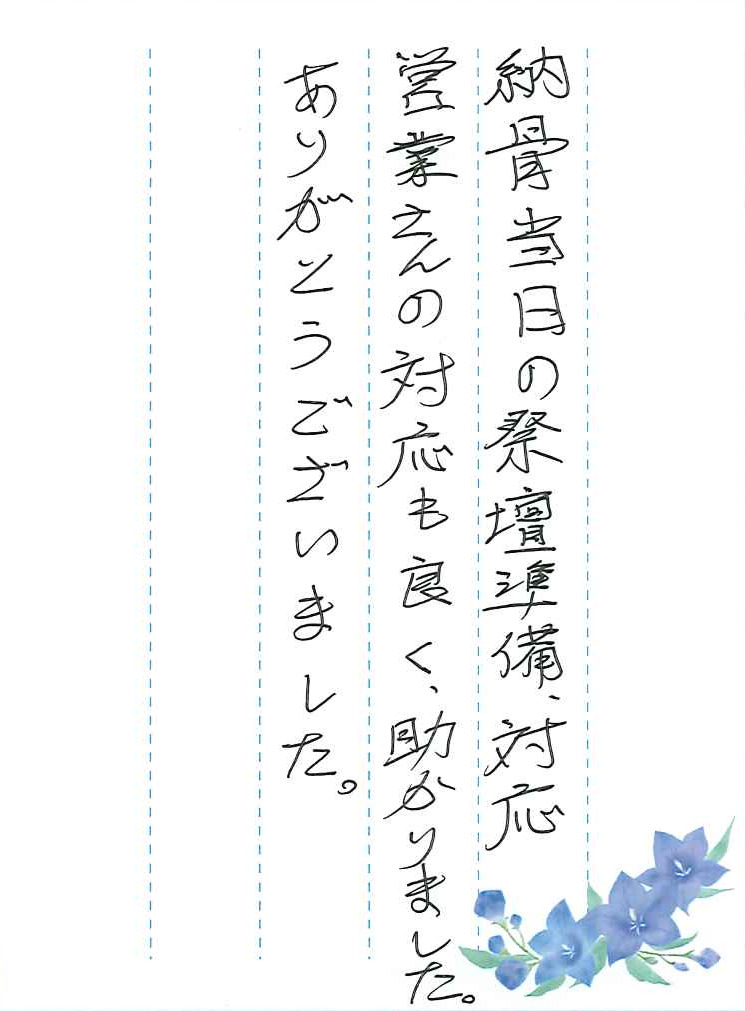 納骨当日の祭壇準備、対応
営業さんの対応も良く、助かりました。
ありがとうございました。